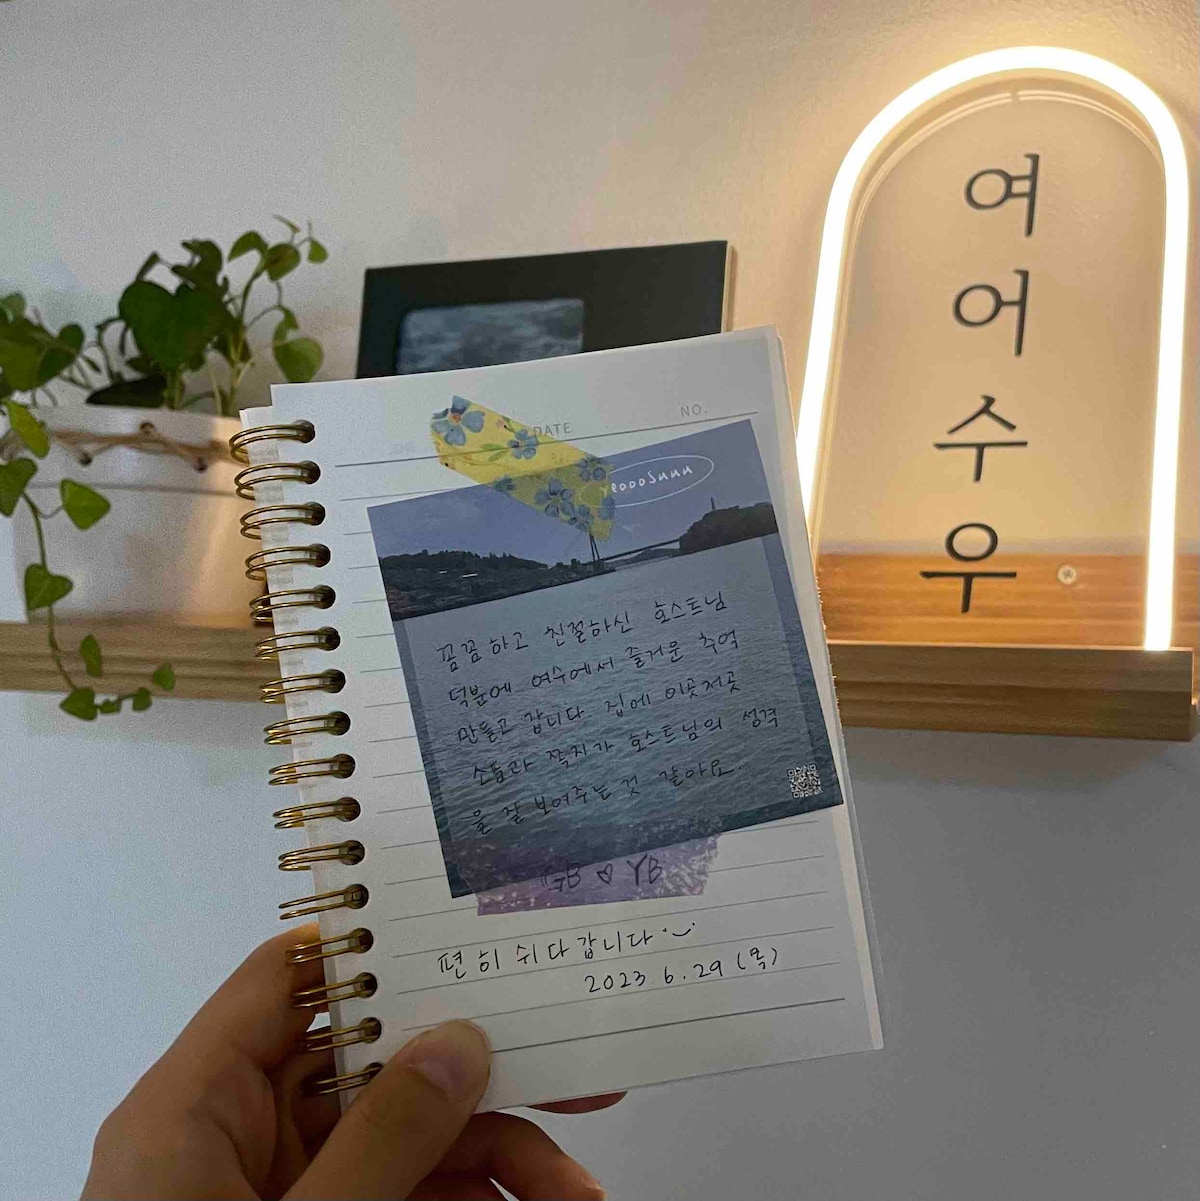 DATE
NO.
yeoooSuuu
꼼꼼하고 친절하신 호스트님
덕분에 여수에서 즐거운 추억
만들고 갑니다. 집에 이곳저곳
소품과 쪽지가 호스트님의 성격
을 잘 보여주는 것 같아요.
GB ♡ YB
편히 쉬다 갑니다
2023. 6. 29 (목)
여
어
수
우